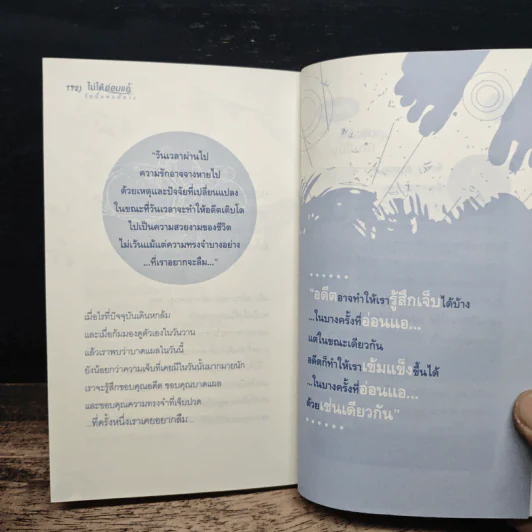 192) ไม่ได้อ่อนแอ้
"วันเวลาผ่านไป
ความรักอาจจางหายไป
ด้วยเหตุและปัจจัยที่เปลี่ยนแปลง
ในขณะที่วันเวลาจะทำให้อดีตเติบโต
ไปเป็นความสวยงามของชีวิต
ไม่เว้นแม้แต่ความทรงจำบางอย่าง
...ที่เราอยากจะลืม..."
เมื่อไรที่ปัจจุบันเดินหกล้ม
และเมื่อก้มมองดูตัวเองในวันวาน
แล้วเราพบว่าบาดแผลในวันนี้
ยังน้อยกว่าความเจ็บที่เคยมีในวันนั้นมากมายนัก
เราจะรู้สึกขอบคุณอดีต ขอบคุณบาดแผล
และขอบคุณความทรงจำที่เจ็บปวด
...ที่ครั้งหนึ่งเราเคยอยากลืม...
"อดีตอาจทำให้เรารู้สึกเจ็บได้บ้าง
...ในบางครั้งที่อ่อนแอ...
แต่ในขณะเดียวกัน
อดีตก็ทำให้เราเข้มแข็งขึ้นได้
...ในบางครั้งที่อ่อนแอ...
ด้วยเช่นเดียวกัน"